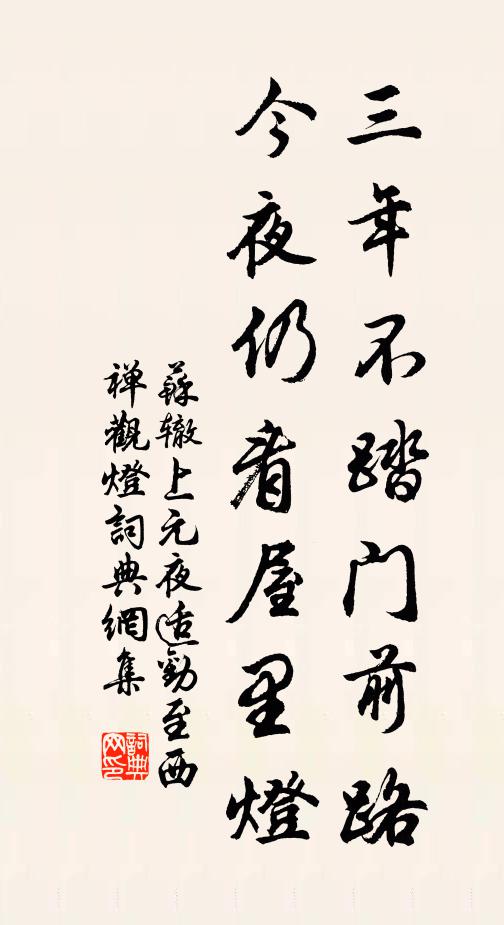 三年不踏门前路
今夜仍看屋里燈
蘇辙上元夜适勸至西
禅觀燈詞典網集
詞典
网印